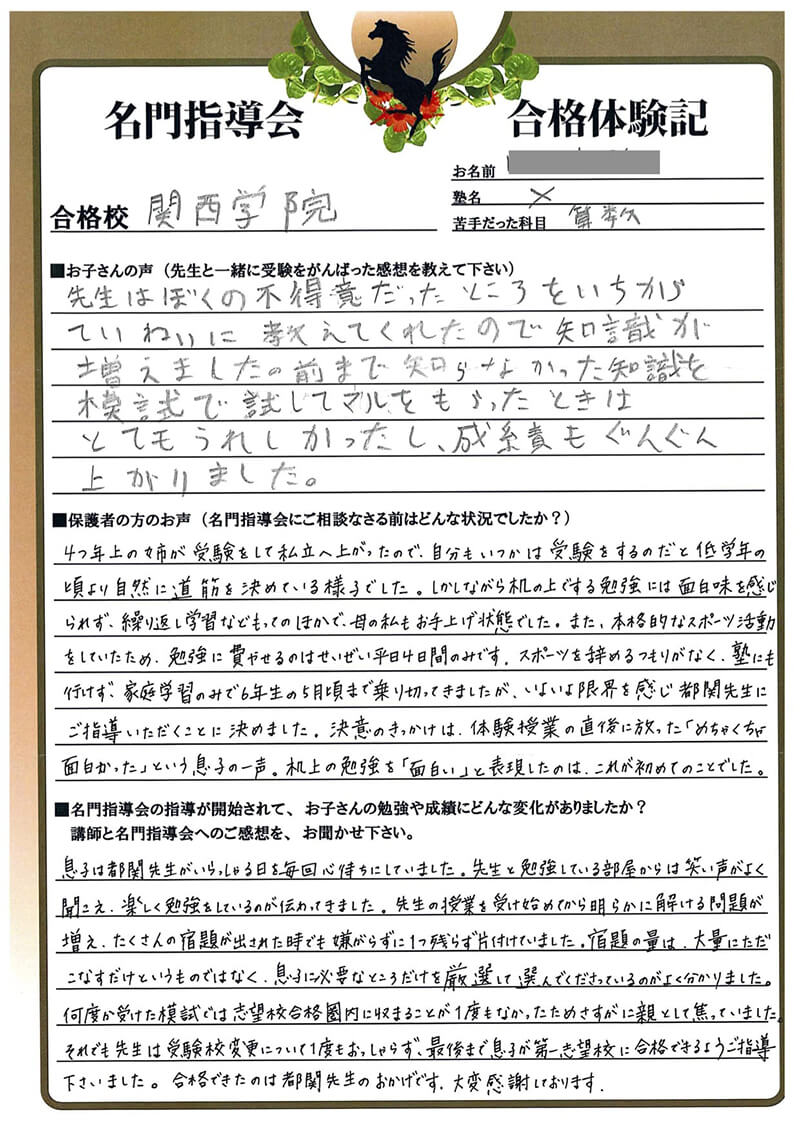 名門指導会
合格体験記
お名前
合格校 関西学院
塾名 ×
苦手だった科目 算数
■お子さんの声（先生と一緒に受験をがんばった感想を教えて下さい）
先生はぼくの不得意だったところをいちから
ていねいに教えてくれたので知識が
増えましたの前まで知らなかった知識を
模試で試してマルをもらったときは
とてもうれしかったし、成績もぐんぐん
上がりました。
■保護者の方のお声（名門指導会にご相談なさる前はどんな状況でしたか？）
4つ年上の姉が受験をして私立へ上がったので、自分もいつかは受験をするのだと低学年の
頃より自然に道筋を決めている様子でした。しかしながら机の上でする勉強には面白味を感じ
られず、繰り返し学習などもってのほかで、母の私もお手上げ状態でした。また、本格的なスポーツ活動
をしていたため、勉強に費やせるのはせいぜい平日4日間のみです。スポーツを辞めるつもりがなく、塾にも
行けず、家庭学習のみで6年生の5月頃まで乗り切ってきましたが、いよいよ限界を感じ都関先生に
ご指導いただくことに決めました。決意のきっかけは、体験授業の直後に放った「めちゃくちゃ
面白かった」という息子の一声。机上の勉強を「面白い」と表現したのは、これが初めてのことでした。
■名門指導会の指導が開始されて、お子さんの勉強や成績にどんな変化がありましたか？
講師と名門指導会へのご感想を、お聞かせ下さい。
息子は都関先生がいらっしゃる日を毎回心待ちにしていました。先生と勉強している部屋からは笑い声がよく
聞こえ、楽しく勉強をしているのが伝わってきました。先生の授業を受け始めてから明らかに解ける問題が
増え、たくさんの宿題が出された時でも嫌がらずに1つ残らず片付けていました。宿題の量は、大量にただ
こなすだけというものではなく、息子に必要なところだけを厳選して選んでくださっているのがよく分かりました。
何度か受けた模試では志望校合格圏内に収まることが1度もなかったためさすがに親として焦っていました。
それでも先生は受験校変更について1度もおっしゃらず、最後まで息子が第一志望校に合格できるようご指導
下さいました。合格できたのは都関先生のおかげです。大変感謝しております。